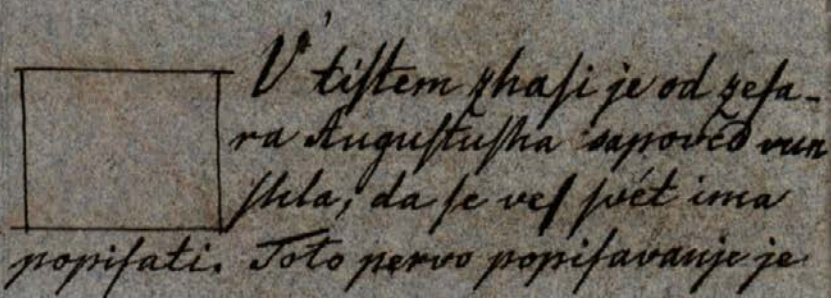 V' tiſtem zhaſi je od zeſa-
ra Auguſtuſha sapovĕd vun
ſhla, da ſe veſ ſvét ima
popiſati. Toto pervo popiſavanje je